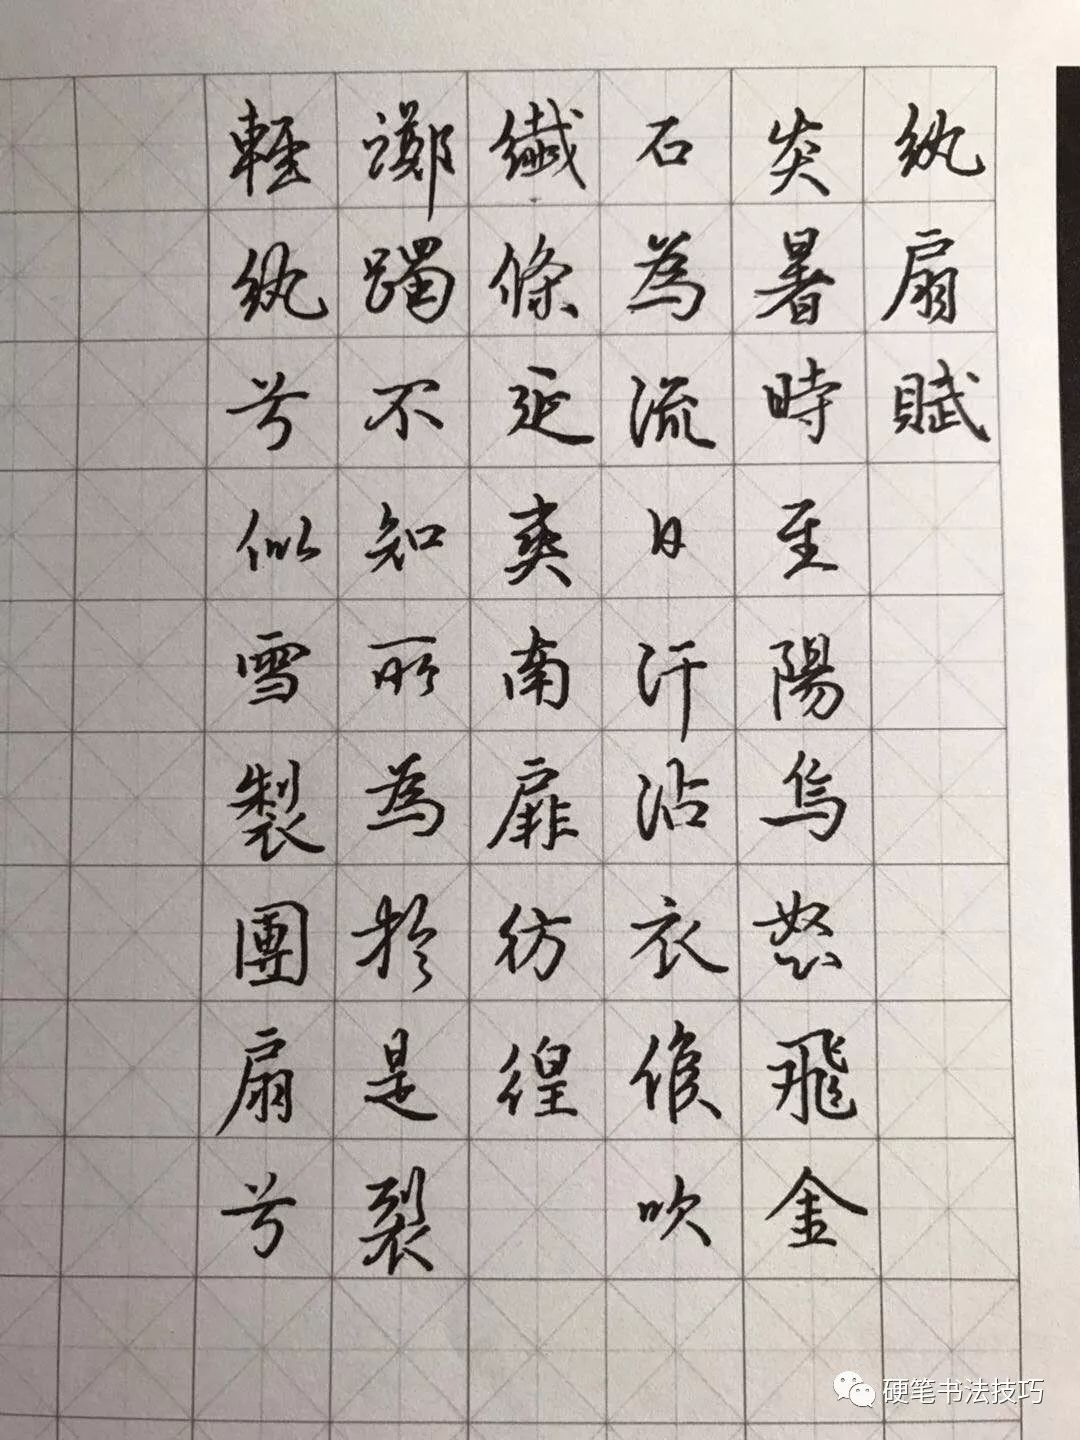 紈扇賦
炎暑時至陽烏怒飛金
石為流日汗沾衣候吹
纖條延爽南扉彷徨
躑躅不知所為於是裂
輕紈兮似雪製團扇兮
硬笔书法技巧